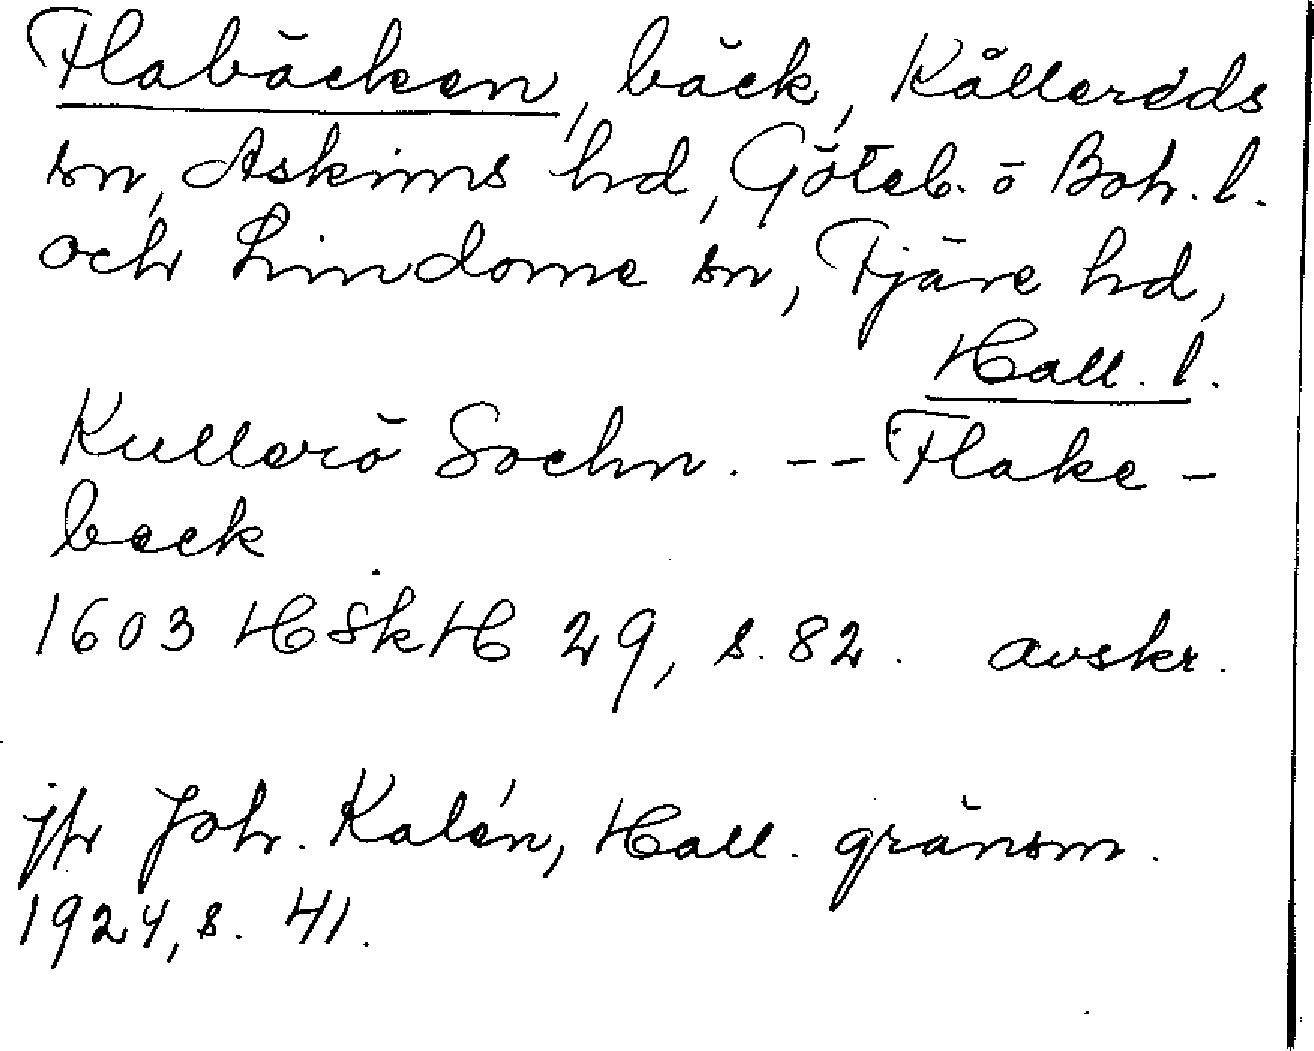 Flabäcken, bäck, Kållereds
sn, Askims hd, Göteb. o Boh. l.
och Lindome sn, Fjäre hd,
Hall. l.
Kullerö Sochn. -- Flake-
beck
1603 HSkH 29, s. 82. avskr.
jfr Joh. Kalén, Hall. gränsm.
1924, s. 41.